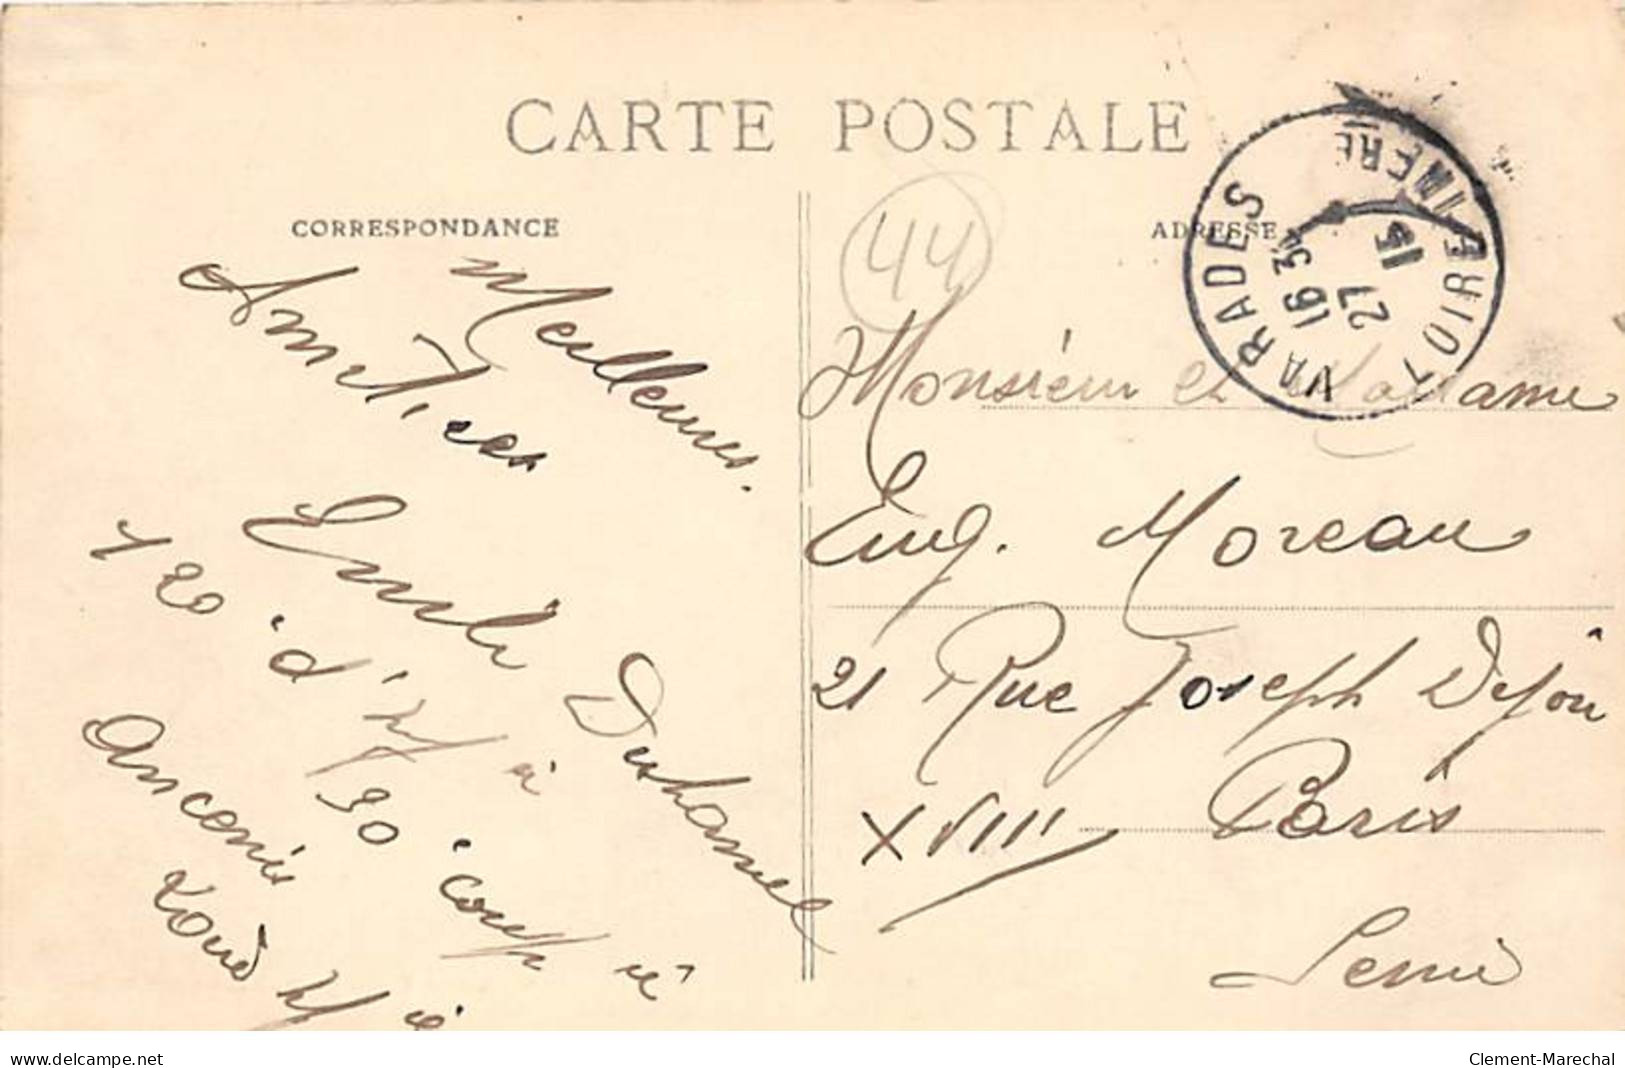 CARTE POSTALE
CORRESPONDANCE
ADRESSE
44
VARADES
16 34
27
15
LOIRE INFRE
Meilleures
Amitiés
Emile Duhamel
120 d'
30
Ancenis
Monsieur et Madame
Eug. Moreau
21 Rue Joseph Dijon
Paris
XVIII
Seine
www.delcampe.net
Clement-Marechal